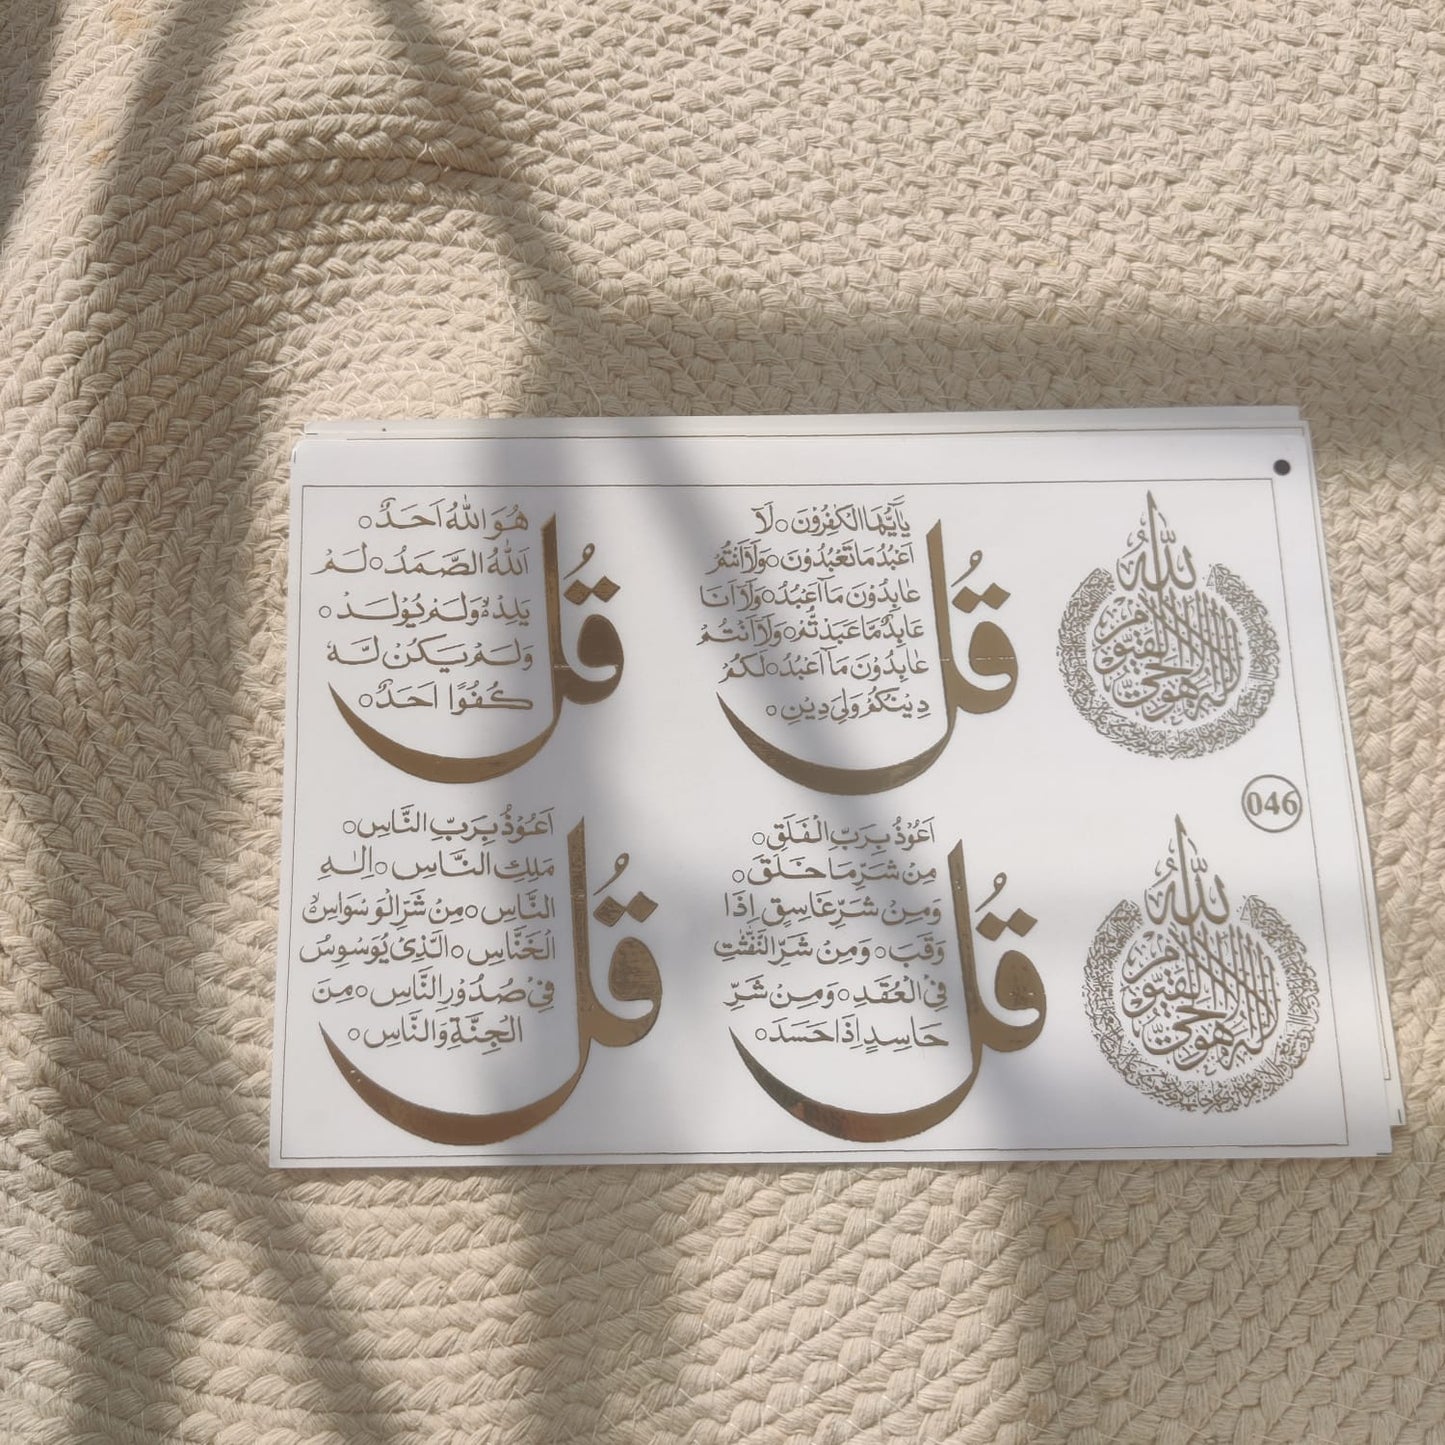 اَللّٰهُ لَا اِلٰهَ اِلَّا هُوَ الْحَيُّ الْقَيُّوْمُ
قُلْ
يٰٓاَيُّهَا الْكٰفِرُوْنَ ○ لَآ
اَعْبُدُ مَا تَعْبُدُوْنَ ○ وَلَآ اَنْتُمْ
عٰابِدُوْنَ مَآ اَعْبُدُ ○ وَلَآ اَنَا
عَابِدٌ مَّا عَبَدْتُّمْ ○ وَلَآ اَنْتُمْ
عٰابِدُوْنَ مَآ اَعْبُدُ ○ لَكُمْ
دِيْنُكُمْ وَلِيَ دِيْنِ ○
قُلْ
هُوَ اللّٰهُ اَحَدٌ ○
اَللّٰهُ الصَّمَدُ ○ لَمْ
يَلِدْ ۙ وَلَمْ يُوْلَدْ ○
وَلَمْ يَكُنْ لَّهٗ
كُفُوًا اَحَدٌ ○
046
اَللّٰهُ لَا اِلٰهَ اِلَّا هُوَ الْحَيُّ الْقَيُّوْمُ
قُلْ
اَعُوْذُ بِرَبِّ الْفَلَقِ ○
مِنْ شَرِّ مَا خَلَقَ ○
وَمِنْ شَرِّ غَاسِقٍ اِذَا
وَقَبَ ○ وَمِنْ شَرِّ النَّفّٰثٰتِ
فِي الْعُقَدِ ○ وَمِنْ شَرِّ
حَاسِدٍ اِذَا حَسَدَ ○
قُلْ
اَعُوْذُ بِرَبِّ النَّاسِ ○
مَلِكِ النَّاسِ ○ اِلٰهِ
النَّاسِ ○ مِنْ شَرِّ الْوَسْوَاسِ ۙ
الْخَنَّاسِ ○ الَّذِيْ يُوَسْوِسُ
فِيْ صُدُوْرِ النَّاسِ ○ مِنَ
الْجِنَّةِ وَالنَّاسِ ○